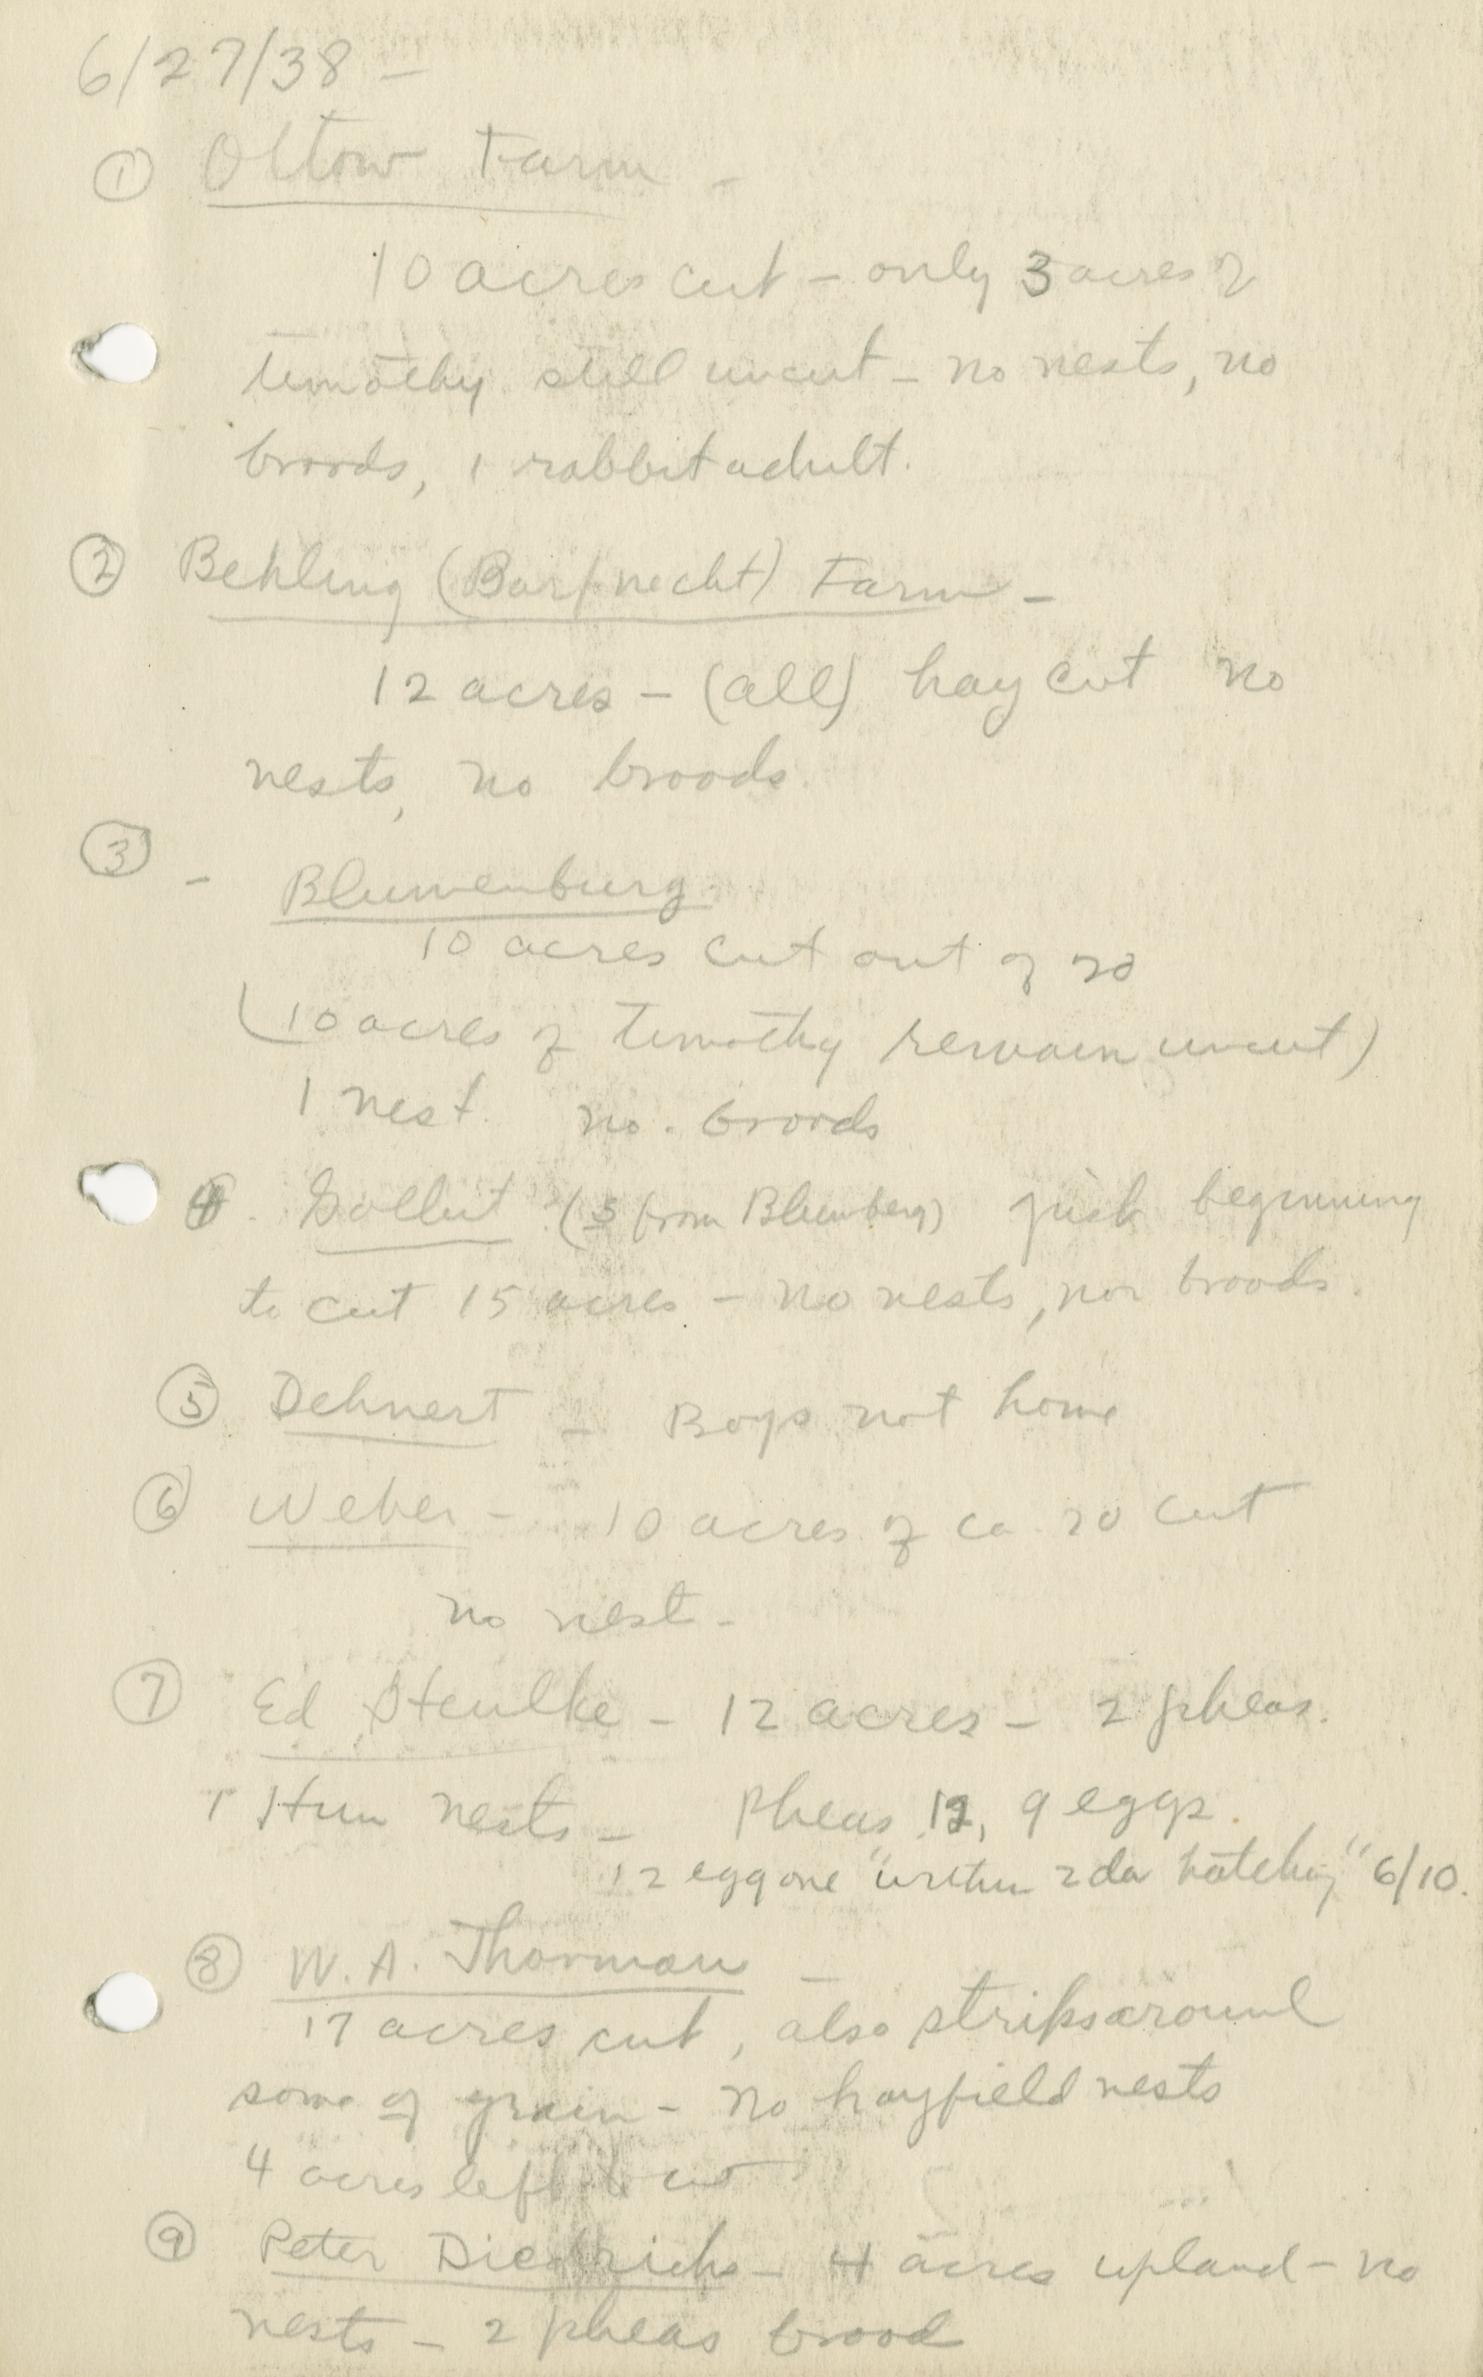 6/27/38 —
① Oltow Farm -
10 acres cut - only 3 acres of
timothy still uncut - no nests, no
broods, 1 rabbit adult.
② Behling (Barfnecht) Farm -
12 acres - (all) hay cut no
nests, no broods.
③ - Blumenburg
10 acres cut out of 20
(10 acres of timothy remain uncut)
1 nest. no. broods
4. (5 from Blumberg) just beginning
to cut 15 acres - no nests, nor broods.
⑤ Dehnert - Boys not home
⑥ Weber - 10 acres of ca. 20 cut
no nest -
⑦ Ed Steulke - 12 acres - 2 pheas.
1 Hun nests - Pheas 12, 9 eggs.
12 egg one "within 2 da hatching" 6/10.
⑧ W. A. Thorman -
17 acres cut, also strips around
some of grain - No hayfield nests
4 acres left to cut
⑨ Peter Diedrichs - 4 acres upland - no
nests - 2 pheas brood